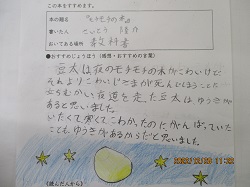 このほんをすすめます。
本の題名 『モチモチの木』
書いた人 さいとう 隆介
おいてある場所 教科書
●おすすめのじょうほう（感想・おすすめの言葉）
豆太は夜のモチモチの木がこわいけど
それよりこわいじさまが死んでしまうこと
立ちむかい夜道を走った豆太はゆうきが
あると思いました。
いたくて寒くてこわかったのにがんばっていた
ことも、ゆうきがあるからだと思いました。